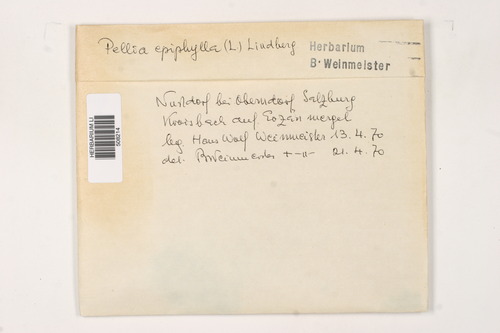 Pellia epiphylla (L) Lindberg
Herbarium
B. Weinmeister
Nußdorf bei Oberndorf Salzburg
Kroisbach auf Eozän mergel
leg. Hans Wolf Weinmeister 13. 4. 70
det. B. Weinmeister + -"- 21. 4. 70
HERBARIUM LI
508214